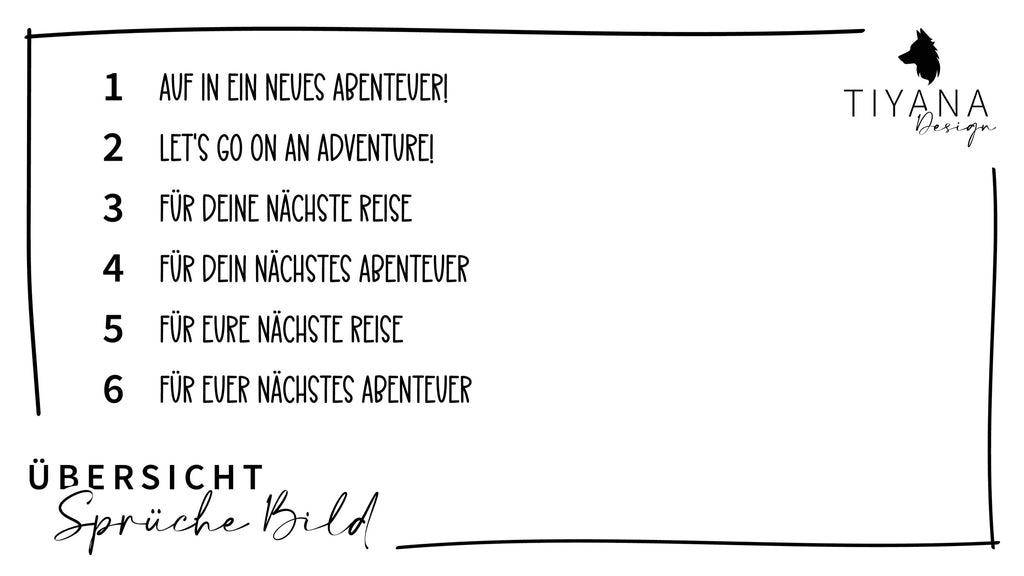 1 AUF IN EIN NEUES ABENTEUER!
2 LET'S GO ON AN ADVENTURE!
3 FÜR DEINE NÄCHSTE REISE
4 FÜR DEIN NÄCHSTES ABENTEUER
5 FÜR EURE NÄCHSTE REISE
6 FÜR EUER NÄCHSTES ABENTEUER
TIYANA
Design
ÜBERSICHT
Sprüche Bild